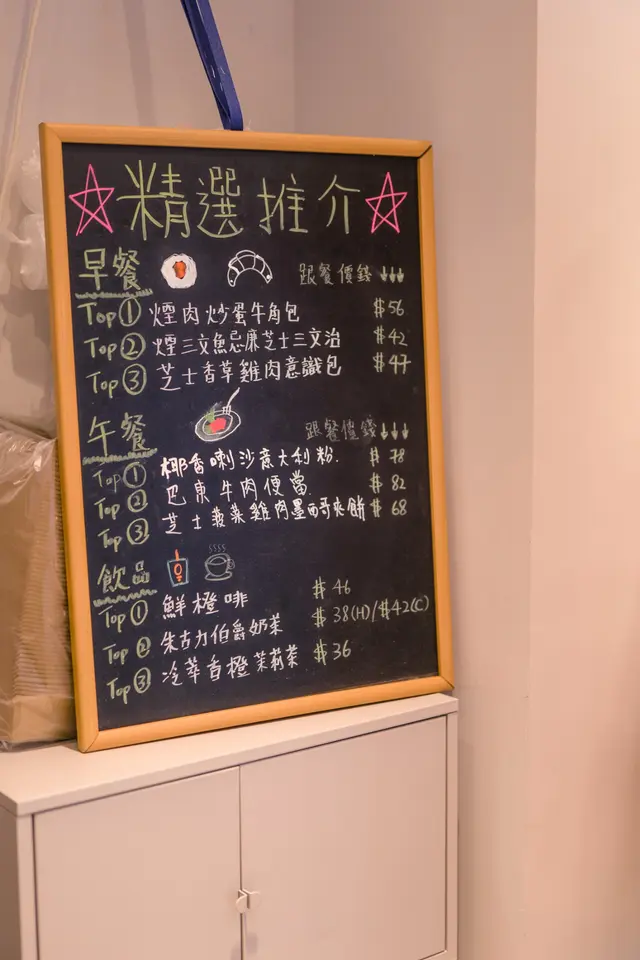 精選推介
早餐 跟餐價錢↓↓↓
Top① 煙肉炒蛋牛角包 $56
Top② 煙三文魚忌廉芝士三文治 $42
Top③ 芝士香草雞肉意識包 $47
午餐 跟餐價錢↓↓↓
Top① 椰香喇沙意大利粉. $78
Top② 巴東牛肉便當. $82
Top③ 芝士菠菜雞肉墨西哥夾餅 $68
飲品
Top① 鮮橙啡 $46
Top② 朱古力伯爵奶茶 $38(H)/$42(C)
Top③ 冷萃香橙茉莉茶 $36